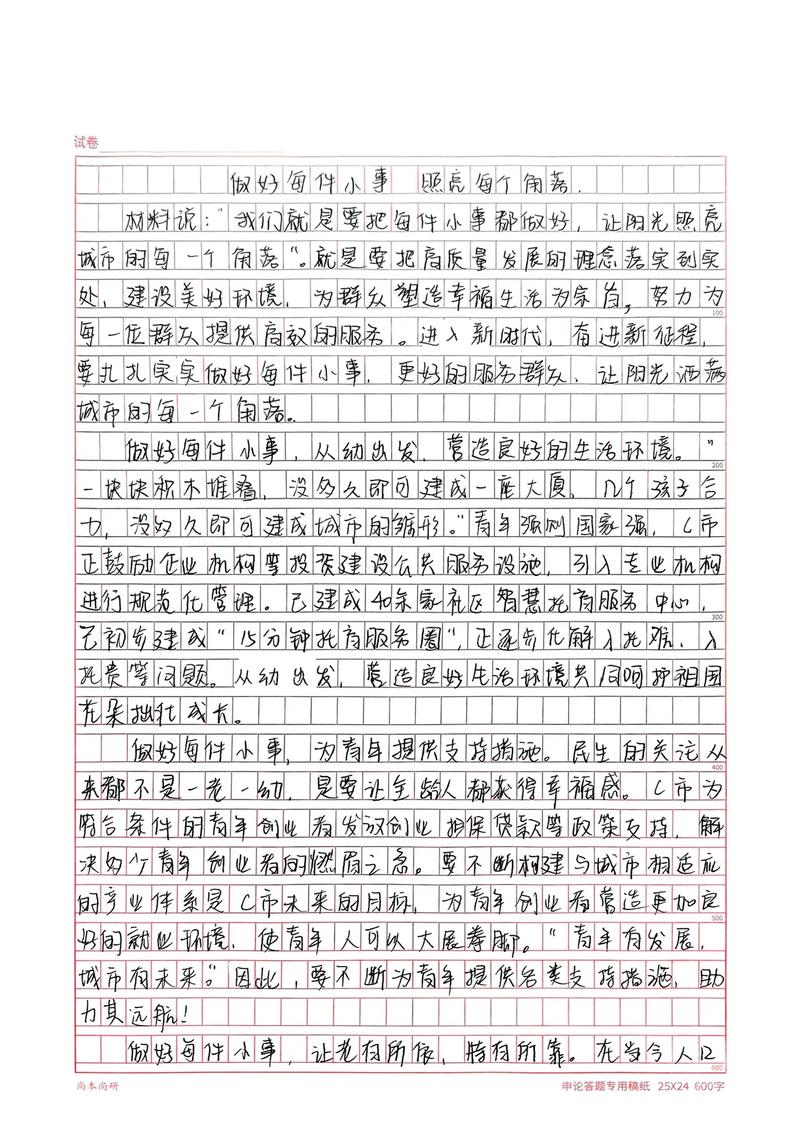 试卷
做好每件小事 照亮每个角落.
材料说:"我们就是要把每件小事都做好,让阳光照亮
城市的每一个角落"。就是要把高质量发展的理念落实到实
处,建设美好环境,为群众塑造幸福生活为宗旨,努力为
每一位群众提供高效的服务。进入新时代,奋进新征程,
要扎扎实实做好每件小事,更好的服务群众、让阳光洒满
城市的每一个角落。
做好每件小事,从幼出发,营造良好的生活环境。"
一块块积木堆叠,没多久即可建成一座大厦,几个孩子合
力,没多久即可建成城市的雏形。"青年强则国家强,C市
正鼓励企业机构等投资建设公共服务设施,引入专业机构
进行规范化管理。已建成40余家社区智慧托育服务中心,
已初步建成"15分钟托育服务圈",正逐步化解入托难、入
托贵等问题。从幼出发,营造良好生活环境共同呵护祖国
花朵茁壮成长。
做好每件小事,为青年提供支持措施。民生的关注从
来都不是一老一幼,是要让全龄人都获得幸福感。C市为
符合条件的青年创业者发放创业担保贷款等政策支持,解
决多个青年创业者的燃眉之急。要不断构建与城市相适应
的产业体系是C市未来的目标,为青年创业者营造更加良
好的就业环境,使青年人可以大展拳脚。"青年有发展,
城市有未来。"因此,要不断为青年提供各类支持措施,助
力其远航!
做好每件小事,让老有所依,特有所靠。在当今人口
尚本尚研
申论答题专用稿纸 25X24 600字
100
200
300
400
500
600